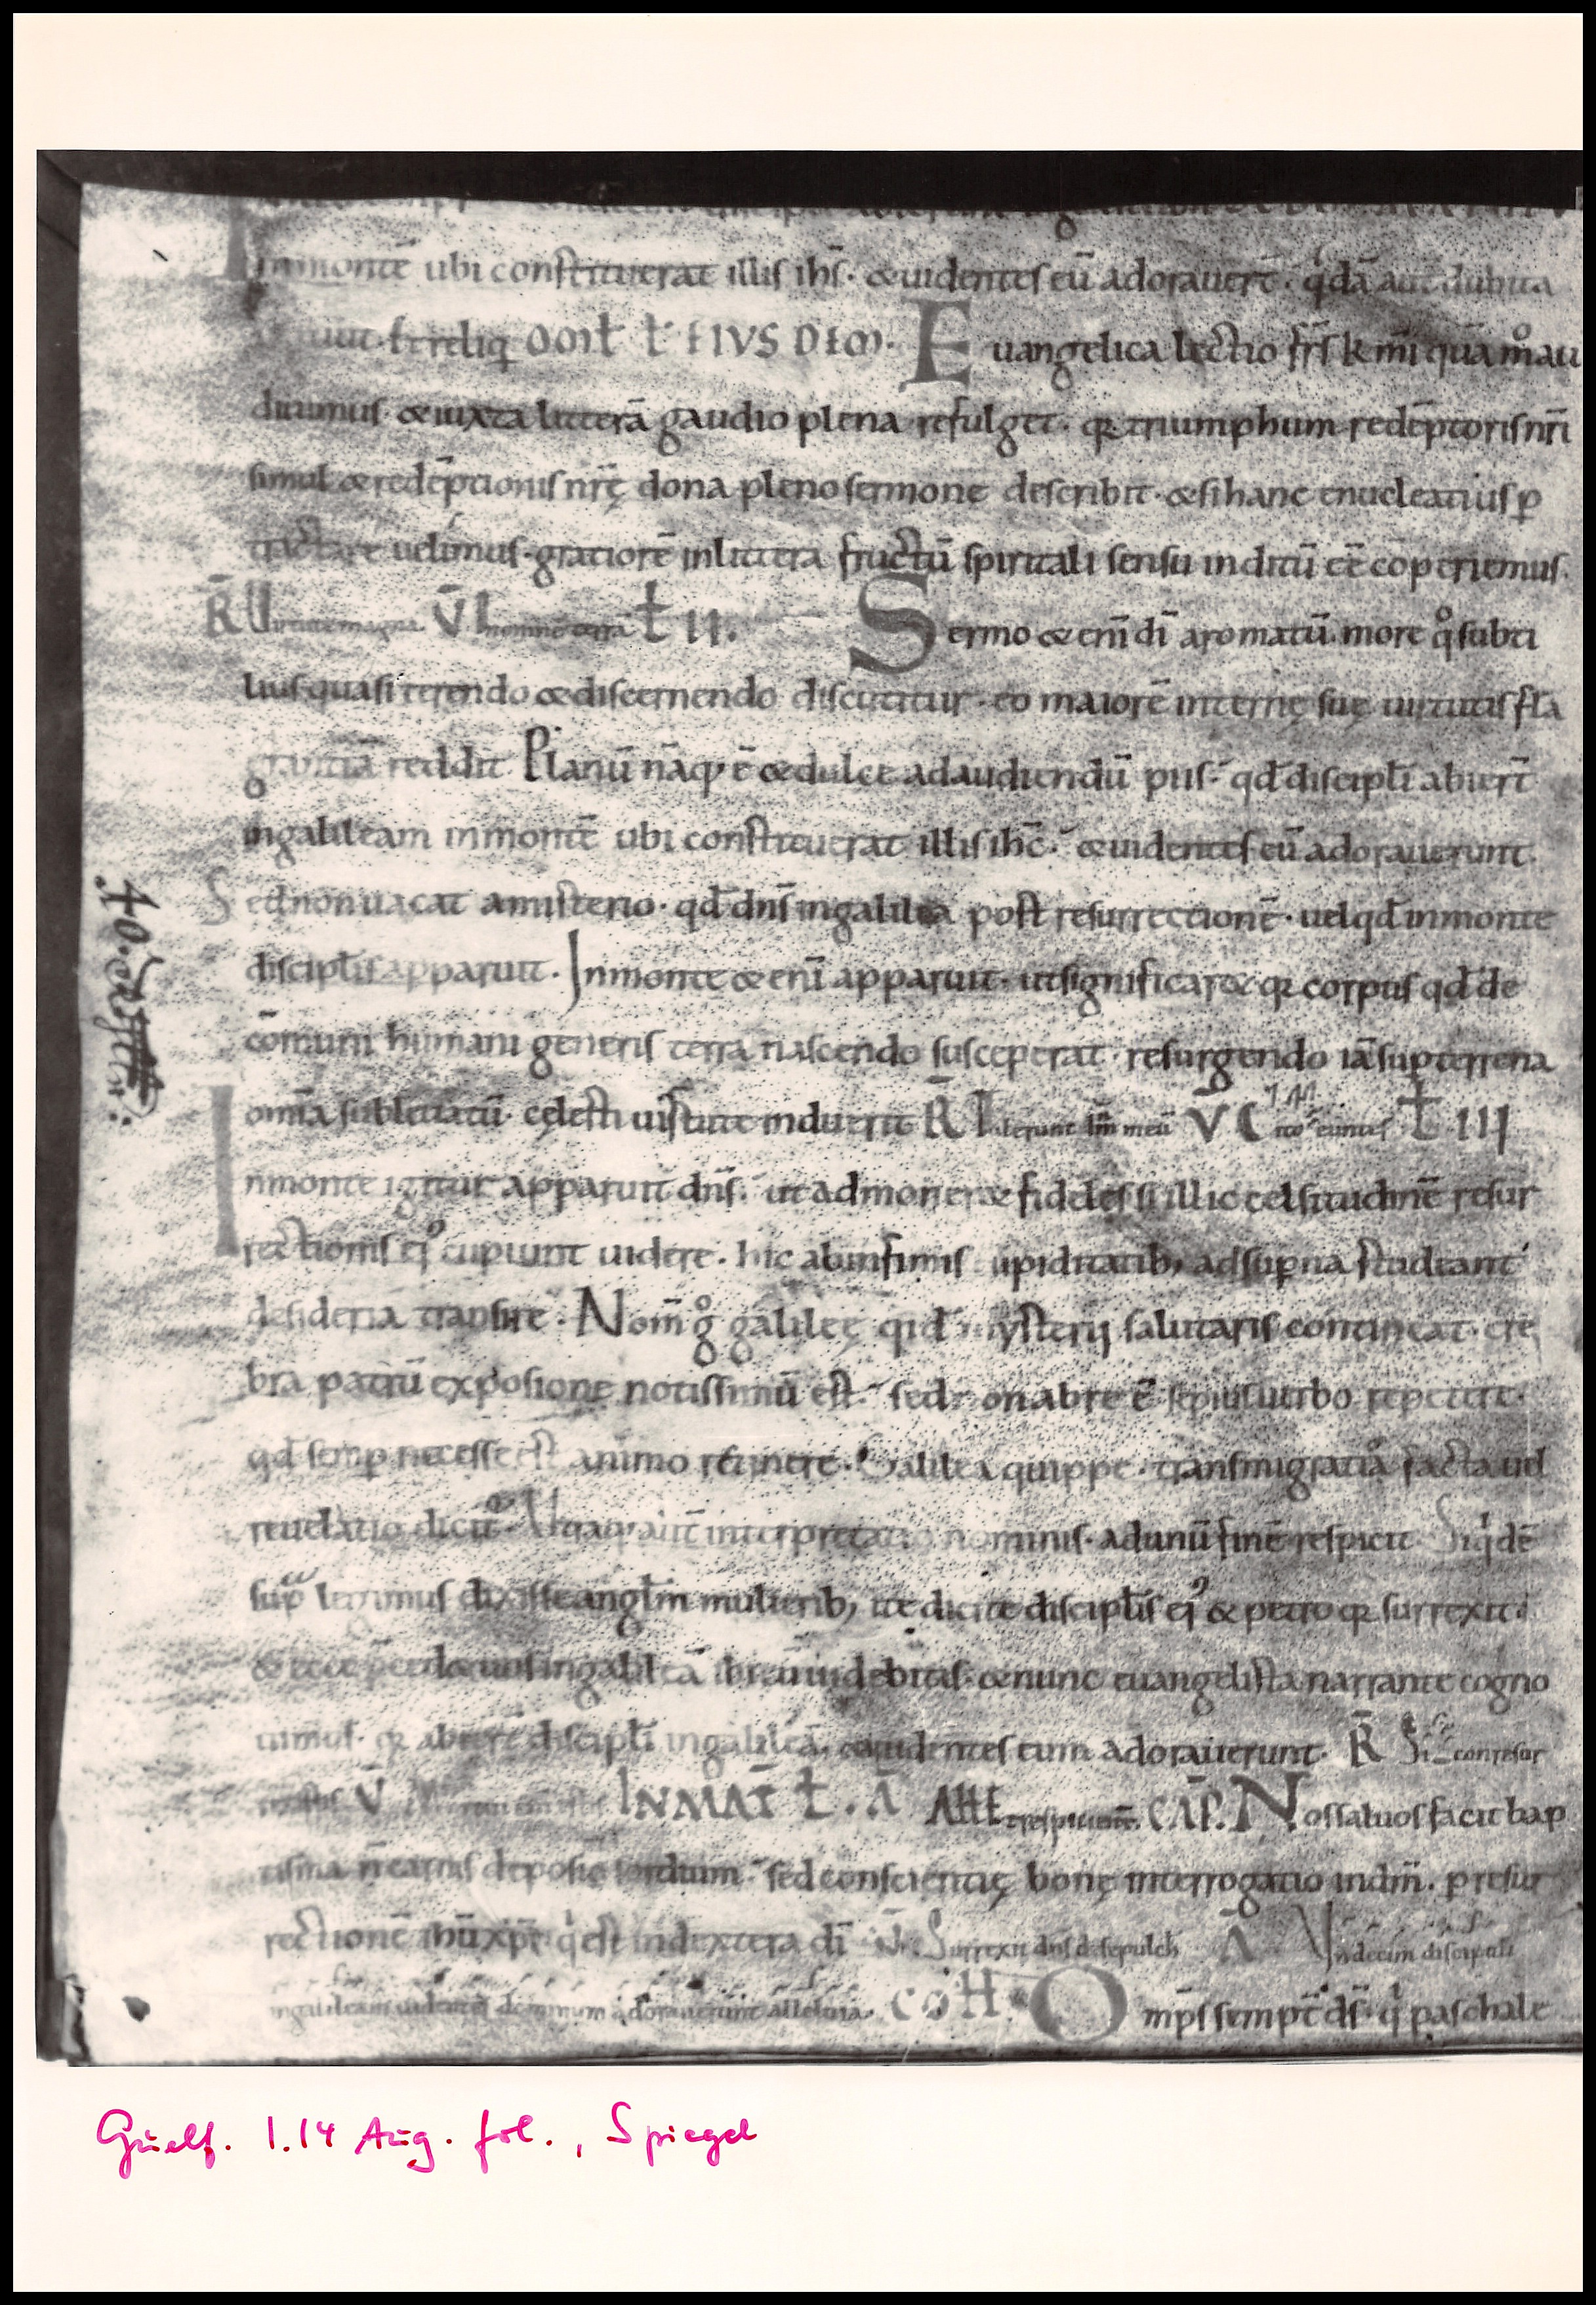 in montē ubi constituerat illis ihs̄. & uidentes eū adorauer̄t. qͥdā aut̄ dubita
uer̄ & reliq OMĒL EIUSDEM. Euangelica lectio fr̄s k̄mi quā m̊ au
diuimus. & iuxta litterā gaudio plena refulget. qꝛ triumphum redēptoris nr̄i
simul & redēptionis nr̄ę dona pleno sermone describit. & si hanc enucleatius ꝑ
tractare uelimus. gratiorē in littera fructū spiritali sensu inditū ēē cōperiemus.
R̄ Uirtute magna V̄ In omnē terra Ł II. Sermo &eni dī aromatū more q̊ subti
lius quasi terendo & discernendo discutitur. eo maiorē internę suę uirtutis fla
grantiā reddit. Planū nāqꝫ ē & dulce ad audiendū piis. qd̄ discipłi abier̄t
in galileam in montē ubi constituerat illis ihc̄. & uidentes eū adorauerunt.
Sed non uacat a misterio. qd̄ dn̄s in galilea post resurrectionē. uel qd̄ in monte
discipłis apparuit. In monte &enī apparuit. ut significar& qꝛ corpus qd̄ de
cōmuni humani generis terra nascendo susceperat. resurgendo iā sup̄ terrena
om̄ia subleuatū. cęlesti uirtute induerit R̄ Tulerunt dn̄m meū V̄ Cito euntes Ł III
In monte igitur apparuit dn̄s. ut admoner& fideles si illic celsitudinē resur
rectionis ei᾽ cupiunt uidere. hic ab infimis cupiditatibꝫ ad sup̄na studeant
desideria transire. Nom̄ g̊ galileę qid mysterii salutaris contineat. cre
bra patrū expositione notissimū est. sed non ab re ē sepius uerbo repetere.
qd̄ semp̄ necesse est animo retinere. Galilea quippe. transmigratio facta uel
reuelatio dicit᷑. Utraqꝫ aut̄ interpretatio nominis. ad unū finē respicit. Siqͥdē
sup̄ legimus dixisse angłm mulieribꝫ ite dicite discipłis ei᾽ & petro qꝛ surrexit.
& ecce p̄cedet uos in galileā ibi eū uidebitis. & nunc euangelista narrante cogno
uimus. qꝛ abier̄t discipłi in galileā. & uidentes eum adorauerunt. R̄ Si conresur
rexistis V̄ IN MAT̄ Ł. Ā Alle respicientē. CAP̄. Nos saluos facit bap
tisma n̄ carnis depositio sordium. sed conscientię bonę interrogatio in dm̄. p̄ resur
rectionē ihū xp̄i qͥ est in dextera dī V̄. Surrexit dn̄s de sepulch Ā Undecim discipuli
in galileam uidentes dominum adorauerunt alleluia. COLL Omp̄s semp̄t d̄s. qͥ paschale
40. Aug. fol.
Guelf. 1.14 Aug. fol., Spiegel